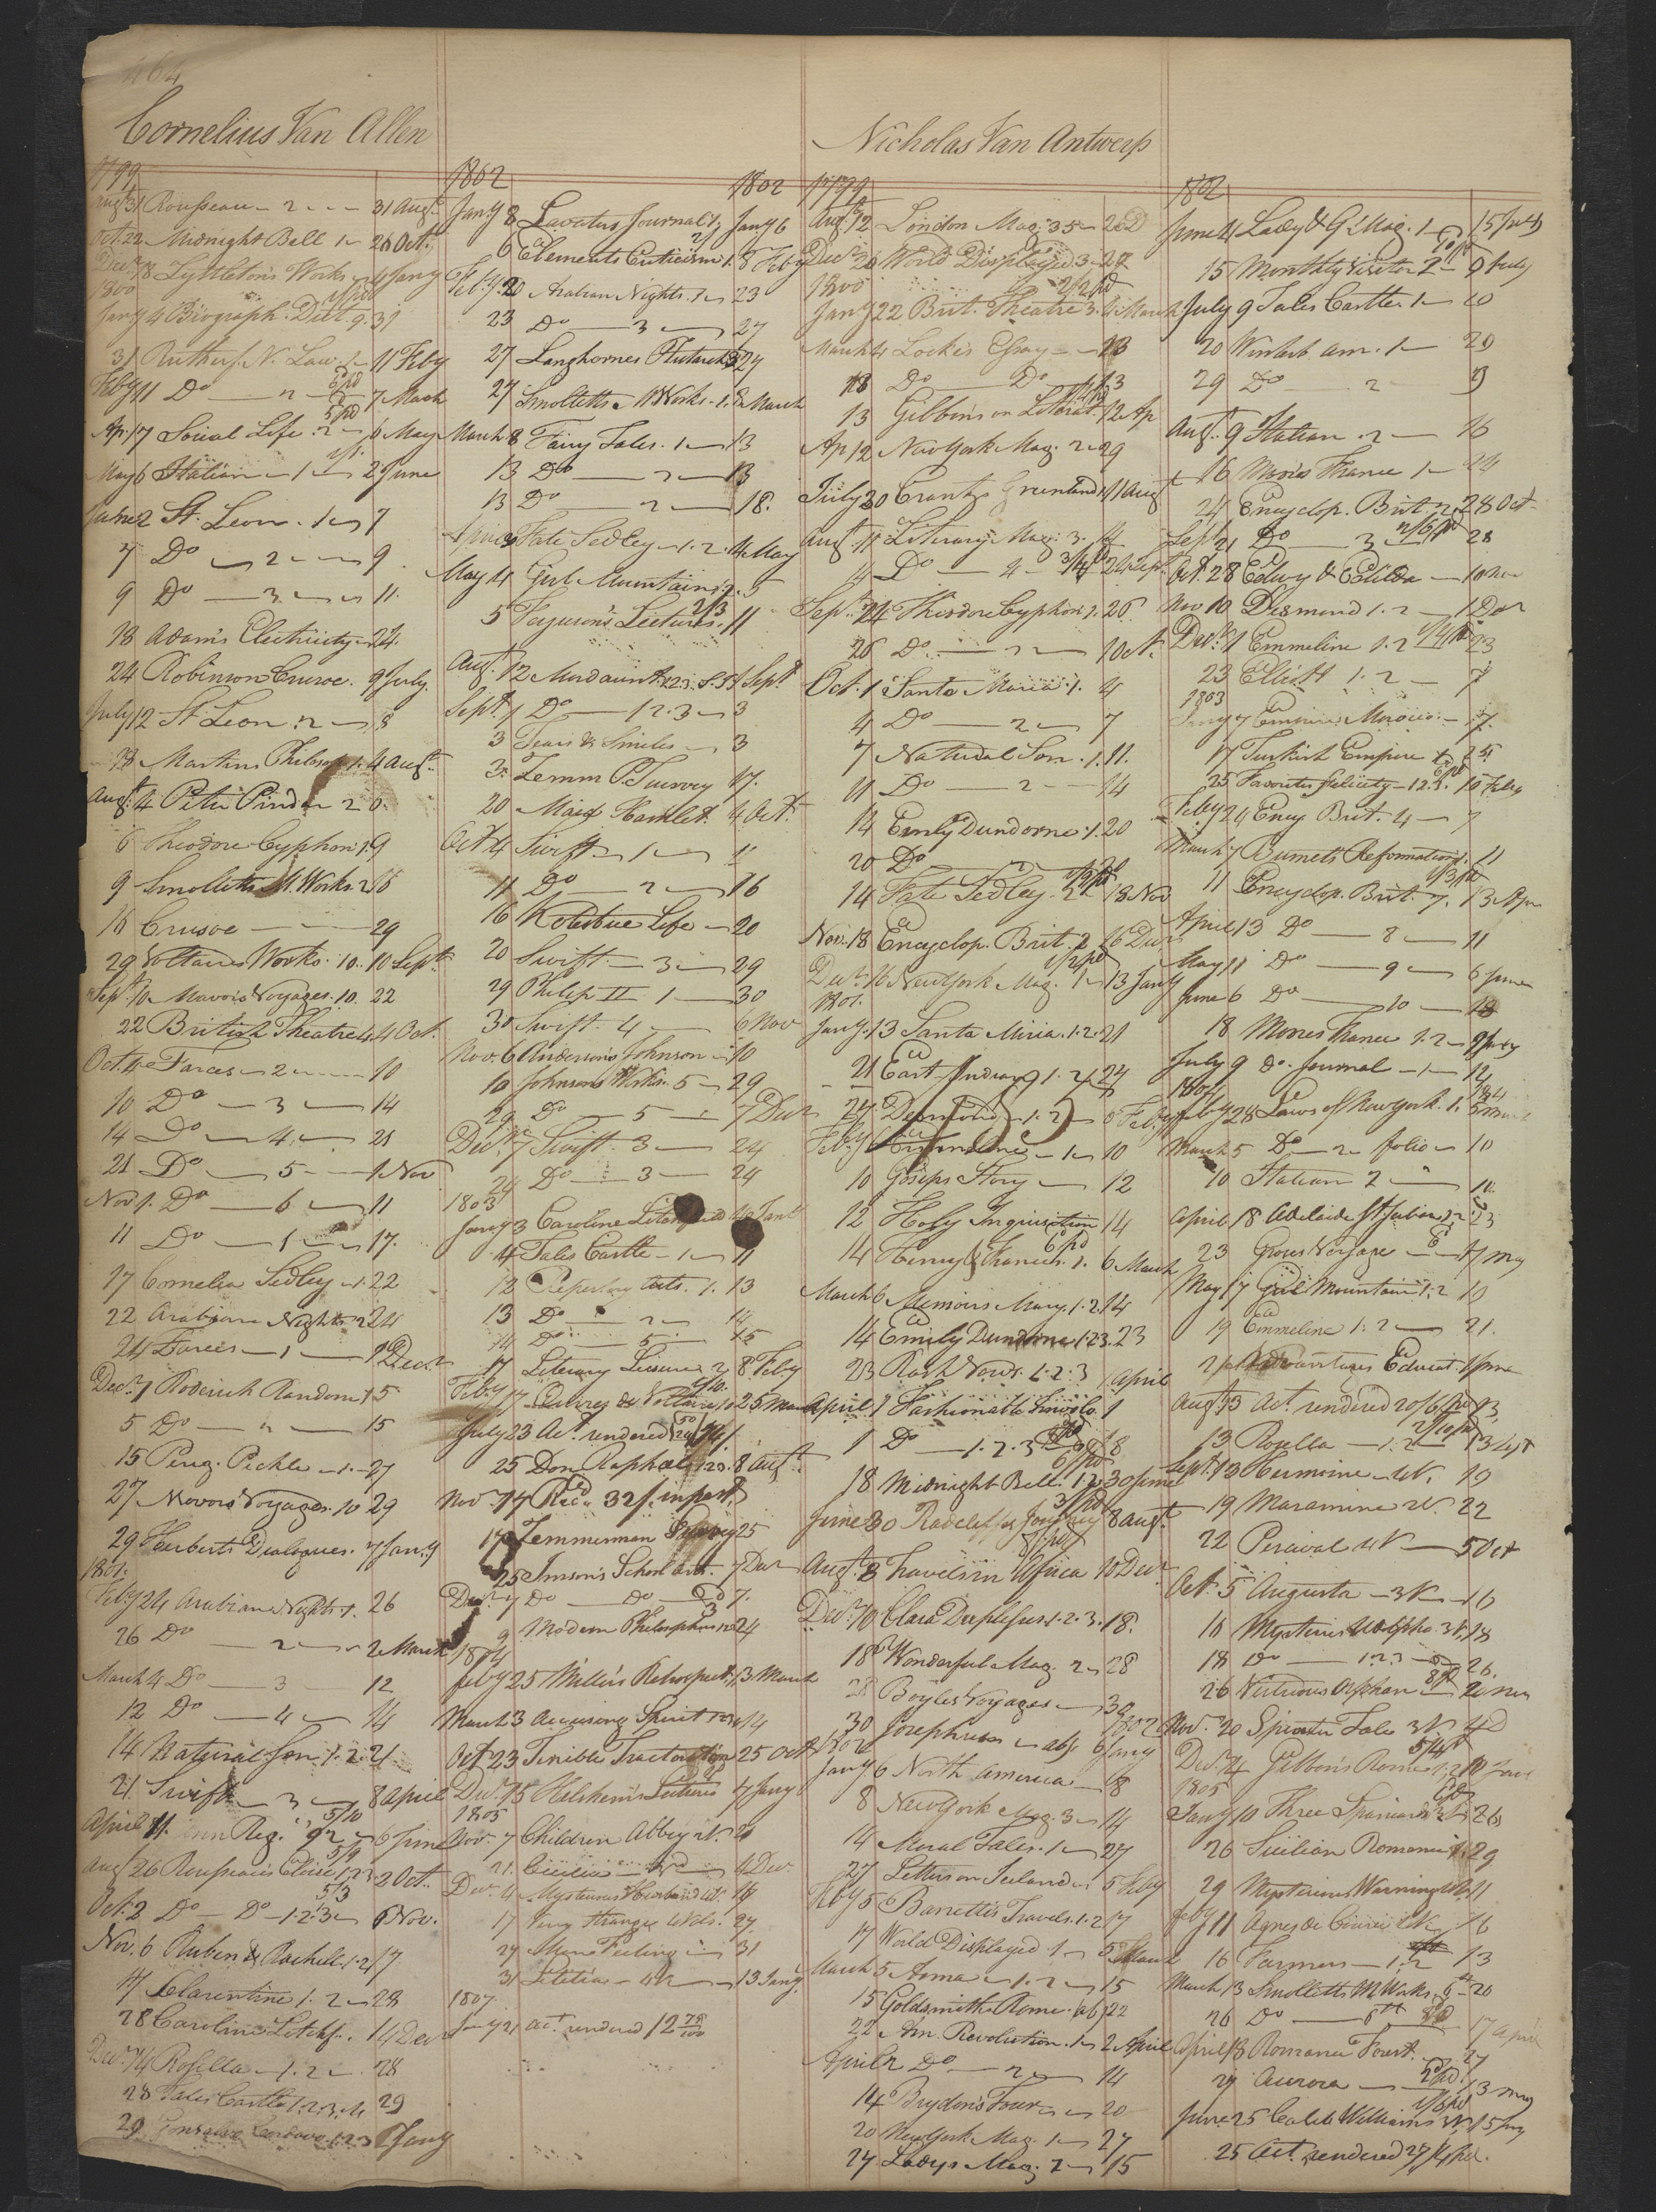 464
Cornelius Van Allen
1799
Augt 31 Rousseau - 2 - - - 31 Augt
Oct. 22 Midnight Bell 1 - 26 Oct.
Decr 18 Lyttleton's Works - 4 Jany
1800
Jany 4 Biograph. Dict. 9. 31
31 Rutherf. N. Law. 1 - 11 Feby
Feby 11 Do - 2 - 7 March
Ap. 17 Social Life. 2 - 6 May
May 6 Italian - 1 - 2 June
June 2 St. Leon. 1 - 7
7 Do - 2 - 9
9 Do - 3 - 11.
18 Adam's Electricity - 24.
24 Robinson Crusoe. 9 July.
July 12 St Leon. 2 - 8
18 Martins Philosop. 1. 4 Augt
Augt 4 Peter Pindar 2 6.
6 Theodore Cyphon 1. 9
9 Smolletts M. Works 2 16
16 Crusoe - 29
29 Voltaires Works. 10. 10 Sept.
Sept 10 Mavors Voyages. 10. 22
22 British Theatre 4. 4 Oct.
Oct. 4 Farces - 2 - - - 10
10 Do - 3 - 14
14 Do - 4 - 21
21 Do - 5 - 1 Nov
Nov 1. Do - 6 - 11
11 Do - 1 - 17.
17 Cornelia Sedley - 1. 22
22 Arabian Nights 2 24
24 Farces - 1 - 1 Decr
Decr 1 Roderick Random 1 5
5 Do - " - 15
15 Pereg. Pickle - 1. - 27
27 Mavors Voyages. 10 29
29 Herberts Dialogues. 7 Jany
1801.
Feby 24 Arabian Nights. 1. 26
26 Do - 2 - 2 March
March 4 Do - 3 - 12
12 Do - 4 - 14
14 Natural Son. 1. 2. 21
21 Swift - 3 - 8 April
April 11. Ann Reg. 92 - 6 June
Aug 26 Rousseau's Eloisa 1. 2.3 2 Oct.
Oct. 2 Do - Do - 1. 2. 3 - 6 Nov.
Nov. 6 Ruben & Rachell. 1. 2 17
17 Clarentine 1. 2 - 28
28 Caroline Litchf. 14 Decr
Decr 14 Rosella - 1. 2 - 28
28 Tales Castle 1. 2. 3. 4 29
29 Gonsalvo Cordova. 1. 2 3 Jany
1802
1802
Jany 8 Lavaters Journal 1. Jany 6
6 Elements Criticism 1. 8 Feby
Feby. 20 Arabian Nights. 1 - 23
23 Do - 3 - 27
27 Langhornes Plutarch 3 27
27 Smolletts M Works. 1. 8 March
March 8 Fairy Tales. 1 - 13
13 Do - 13
13 Do - 2 - 18.
Fate Sedley - 1. 2. 4 May
May 4 Girl Mountains 2. 5
5 Ferguson's Lectures. 11
Aug. 12 Mordaunt 1 2 3. 1 Sept.
Sept. 1 Do - 1 2. 3 - 3
3 Tears & Smiles - 3
3. Zemm P. Survey 17.
20 Maid Hamlet. 4 Oct.
Oct. 4 Swift - 1 - 11
11 Do - 2 - 16
16 Kotzebue Life - 20
20 Swift - 3 - 29
29 Philip II 1 - 30
30 Swift. 4 - 6 Nov
Nov. 6 Anderson's Johnson - 10
10 Johnson's Works. 5 - 29
29 Do - 5 - 7 Decr
Decr 7 Swift. 3 - 24
24 Do - 3 - 24
1803
Jany 3 Caroline Litchfield
4 Tales Castle - 1 - 11
12 Repertory Arts. 1. 13
13 Do - 2 - 14
14 Do - 5 - 15
17 Literary Leisure 2 8 Feby
Feby 17
July 23 Act. rendered
25 Don Raphael 1 2 3. 8 Augt
Novr 14 Recd 32/. in part.
17 Zemmerman Survey 25
25 Imison's School Arts. 7 Decr
Decr 7 Do - Do - 7.
9 Modern Philosophers 24
1804
Feby 25 Millers Retrospect. 1. 3 March
March 3 Accusing Spirit 14
Oct 23 Terrible Tractoration 25 Oct
Decr 15 Helsham's Lectures 4 Jany
1805
Nov. 7 Children Abbey
21. Cecilia - 4 Dec.
Decr 4 Mysterious Husband 4 V. 17
17 Very Strange 4 Vols. 27.
27 Man Feeling - 31
31 Letitia - 4 V - 13 Jany.
1807
Jany 21 Act. rendered 12 78/100
Nicholas Van Antwerp
1799
Augt 12 London Mag. 35 -
Decr 20 World Displayed 3 - 27
1800
Jany 22 Brit. Theatre 3. 4 March
March 4 Locke's Essay - 13
18 Do - Do - 13
13 Gibbons on Literat. 12 Ap
Ap 12 New York Mag. 2 - 29
July 30 Crantz Greenland 1. 11 Augt
Augt. 11 Literary Mag. 3. 14
14 Do - 4 - 24 Sept.
Sept. 24. Theodore Cyphon 1. 26
26 Do - 2 - 1 Oct.
Oct. 1 Santa Maria. 1. 4
4 Do - 2 - 7
7 Natural Son. 1. 11.
11 Do - 2 - 14
14 Emily Dundorne. 1. 20
20 Do
14 Fate Sedley. 2 18 Nov
Nov. 18 Encyclop. Brit. 2 16 Decr
Decr 16 New York Mag. 1 - 13 Jany
1801.
Jany. 13 Santa Miria. 1. 2. 21
21 East Indian 1. 2 24
24 Desmond 1. 2 - 6 Feby
Feby 6 Emmeline - 1 - 10
10 Gossips Story - 12
12 Holy Inquisition 14
14 Henry & Frances. 1. 6 March
March 6 Memoirs Mary. 1. 2. 14
14 Emily Dundorne 1. 2 3. 23
23 Rash Vows. 1. 2. 3 1 April
April 1 Fashionable Involo. 1
1 Do - 1. 2. 3 - 18
18 Midnight Bell. 1. 2. 30 June
June 30 Radcliffes Journey 8 Augt.
Aug. 8 Travels in Africa 10 Decr
Decr 10 Clara Duplessis 1. 2. 3. 18.
18 Wonderful Mag. 2 - 28
28 Boyles Voyages - 30
30 Josephus - 6 Jany
1802
Jany 6 North America - 8
8 New York Mag. 3 - 14
14 Moral Tales. 1 - 27
27 Letters on Iceland - 5 Feby
Feby 5 Barretti's Travels. 1. 2 17
17 World Displayed. 1 - 5 March
March 5 Anna - 1. 2 - 15
15 Goldsmiths Rome. ab. 22
22 Am. Revolution. 1 - 2 April
April 2 Do - 2 - 14
14 Brydon's Tour - 20
20 New York Mag. 1 - 27
27 Ladys Mag. 2 - 15
1802
June 4 Lady & G. Mag. 1 - 15 July
15 Monthly Visitor 2 - 9 July
July 9 Tales Castle. 1 - 20
20 Winterb. Am. 1 - 29
29 Do - 2 - 9
Augt. 9 Italian. 2 - 16
16 Moores France 1 - 24
24 Encyclop. Brit. 2. 28 Oct
Sept. 21 Do - 3 28
Oct. 28 Edwy & Edilda - 10 Nov
Nov 10 Desmond 1. 2 - 1 Decr
Decr 1 Emmeline 1. 2 23
23 Ellist 1. 2 - 7
1803
Jany 7 Empire Morocco - 17.
17 Turkish Empire 25
25 Favorites Felicity - 1 2 3. 10 Feby
Feby 24 Ency Brit. 4 - 7
March 7 Burnets Reformation 1. 11
11 Encyclop. Brit. 7. 13 Apr
April 13 Do - 8 - 11
May 11 Do - 9 - 6 June
June 6 Do - 10 - 18
18 Moores France 1. 2 - 9 July
July 9 do. Journal - 1 - 12
1804
Feby 28 Laws of New York. 1.
March 5 Do - 2 - folio - 10
10 Italian 2 -
April 18 Adelaide St Julian 23
23 Groses Voyage - 17 May
May 17 Girl Mountain 1. 2 19
19 Emmeline 1. 2 - 21.
21 Adventures Educat. 1 June
Augt 13 Act. rendered 20/6 pd 13
13 Rosella - 1. 2 - 13 Sept
Sept. 13 Hermione - 4 V. 19
19 Maramine 2 V. 22
22 Percival 4 V - 5 Oct
Oct. 5 Augusta - 3 V - 16
16 Mysteries Udolpho 3 V. 18
18 Do - 1 2 3 - 26.
26 Virtuous Orphan 20 Nov
Nov. 20 Spinster Tale 3 V. 4 D
Decr 4 Gibbon's Rome 1. 2 10 Jany
1805
Jany 10 Three Spaniards 26
26 Sicilian Romance 29
29 Mysterious Warning 11
Feby 11 Agnes de Courci 16
16 Farmers - 1. 2 13
March 13 Smolletts M Works. 6th - 20
26 Do - 6th 17 April
April 18 Romance Forest. - 27
27 Aurora - 13 May
June 25 Caleb Williams 3 V. 15 July
25 Act. rendered 27/4 pd.